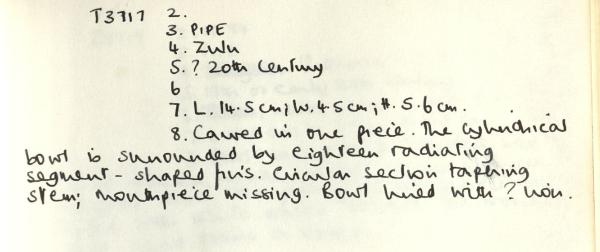 T3717 2.
3. PIPE
4. Zulu
5. ? 20th Century
6
7. L. 14.5cm; W. 4.5cm; H. 5.6cm.
8. Carved in one piece. The cylindrical
bowl is surrounded by eighteen radiating
segment-shaped fins. Circular section tapering
stem; mouthpiece missing. Bowl lined with ? iron.